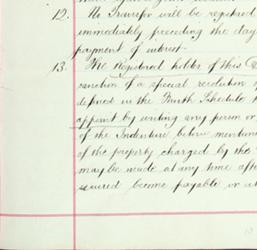 12. No Transfer will be registered
immediately preceding the day
payment of interest
13. The Registered holder of this
sanction of a special resolution
defined in the Fourth Schedule
appoint by writing any person or
of the Indenture before mentione
of the property charged by the
may be made at any time afte
secured become payable or